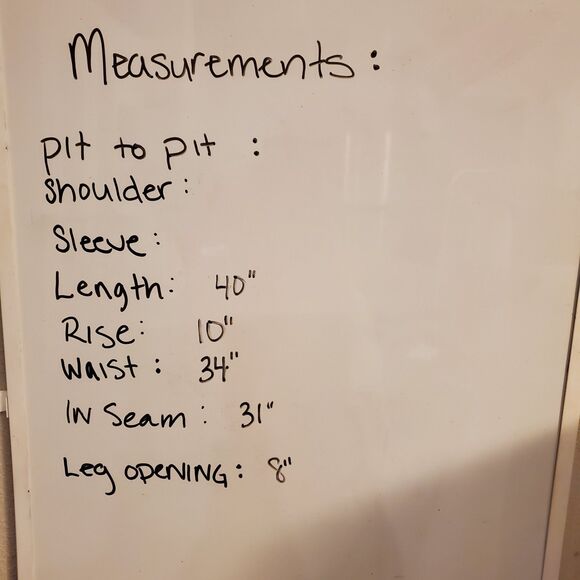 Measurements:
pit to pit :
shoulder:
Sleeve:
Length: 40"
Rise: 10"
Waist : 34"
In Seam : 31"
Leg OPENING: 8"